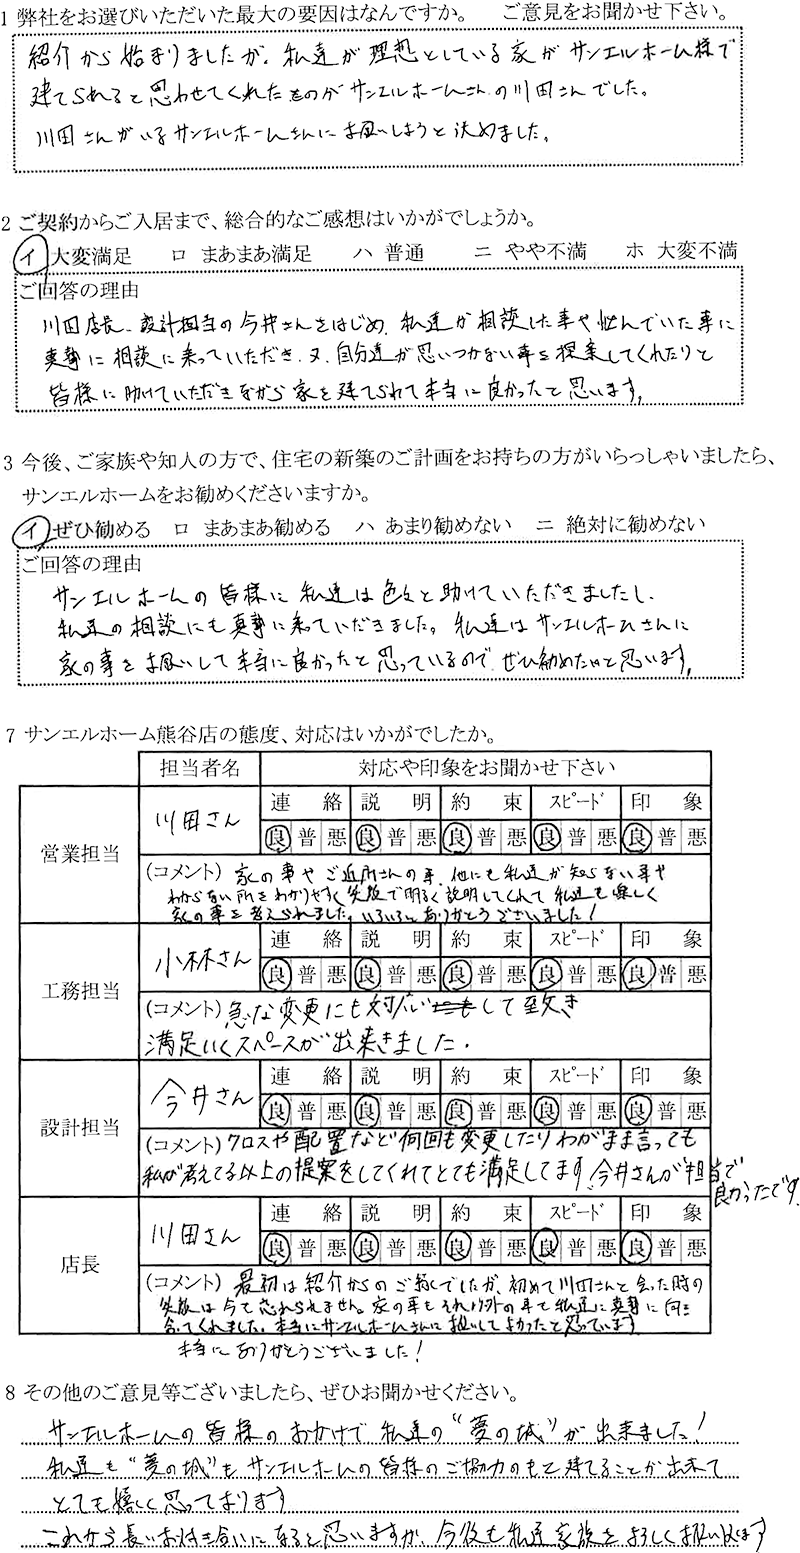 1 弊社をお選びいただいた最大の要因はなんですか。 ご意見をお聞かせ下さい。
紹介から始まりましたが、私達が理想としている家がサンエルホーム様で
建てられると思わせてくれたものがサンエルホームさんの川田さんでした。
川田さんがいるサンエルホームさんにお願いしようと決めました。
2 ご契約からご入居まで、総合的なご感想はいかがでしょうか。
イ 大変満足 ロ まあまあ満足 ハ 普通 ニ やや不満 ホ 大変不満
ご回答の理由
川田店長、設計担当の今井さんをはじめ、私達が相談した事や悩んでいた事に
真摯に相談に乗っていただき、又、自分達が思いつかない事を提案してくれたりと
皆様に助けていただきながら家を建てられて本当に良かったと思います。
3 今後、ご家族や知人の方で、住宅の新築のご計画をお持ちの方がいらっしゃいましたら、
サンエルホームをお勧めくださいますか。
イ ぜひ勧める ロ まあまあ勧める ハ あまり勧めない ニ 絶対に勧めない
ご回答の理由
サンエルホームの皆様に私達は色々と助けていただきましたし、
私達の相談にも真摯に乗っていだきました。私達はサンエルホームさんに
家の事をお願いして本当に良かったと思っているので、ぜひ勧めたいと思います。
7 サンエルホーム熊谷店の態度、対応はいかがでしたか。
担当者名 対応や印象をお聞かせ下さい
営業担当 川田さん 連絡 説明 約束 スピード 印象
良 普 悪 良 普 悪 良 普 悪 良 普 悪 良 普 悪
(コメント) 家の事やご近所さんの事、他にも私達が知らない事や
わからない所をわかりやすく笑顔で明るく説明してくれて私達も楽しく
家の事を考えられました。いろいろとありがとうございました!
工務担当 小林さん 連絡 説明 約束 スピード 印象
良 普 悪 良 普 悪 良 普 悪 良 普 悪 良 普 悪
(コメント) 急な変更にも対応して頂き
満足いくスペースが出来きました.
設計担当 今井さん 連絡 説明 約束 スピード 印象
良 普 悪 良 普 悪 良 普 悪 良 普 悪 良 普 悪
(コメント) クロスや配置など何回も変更したりわがまま言っても
私が考えてる以上の提案をしてくれてとても満足してます。今井さんが担当で
良かったです.
店長 川田さん 連絡 説明 約束 スピード 印象
良 普 悪 良 普 悪 良 普 悪 良 普 悪 良 普 悪
(コメント) 最初は紹介からのご縁でしたが、初めて川田さんと会った時の
笑顔は今でも忘れられません。家の事もそれ以外の事でも私達に真摯に向き
合ってくれました。本当にサンエルホームさんにお願いしてよかったと思っています
本当にありがとうございました!
8 その他のご意見等ございましたら、ぜひお聞かせください。
サンエルホームの皆様のおかげで私達の“夢の城”が出来ました!
私達も“夢の城”もサンエルホームの皆様のご協力のもと建てることが出来て
とても嬉しく思っております
これから長いお付き合いになると思いますが、今後も私達家族をよろしくお願いします